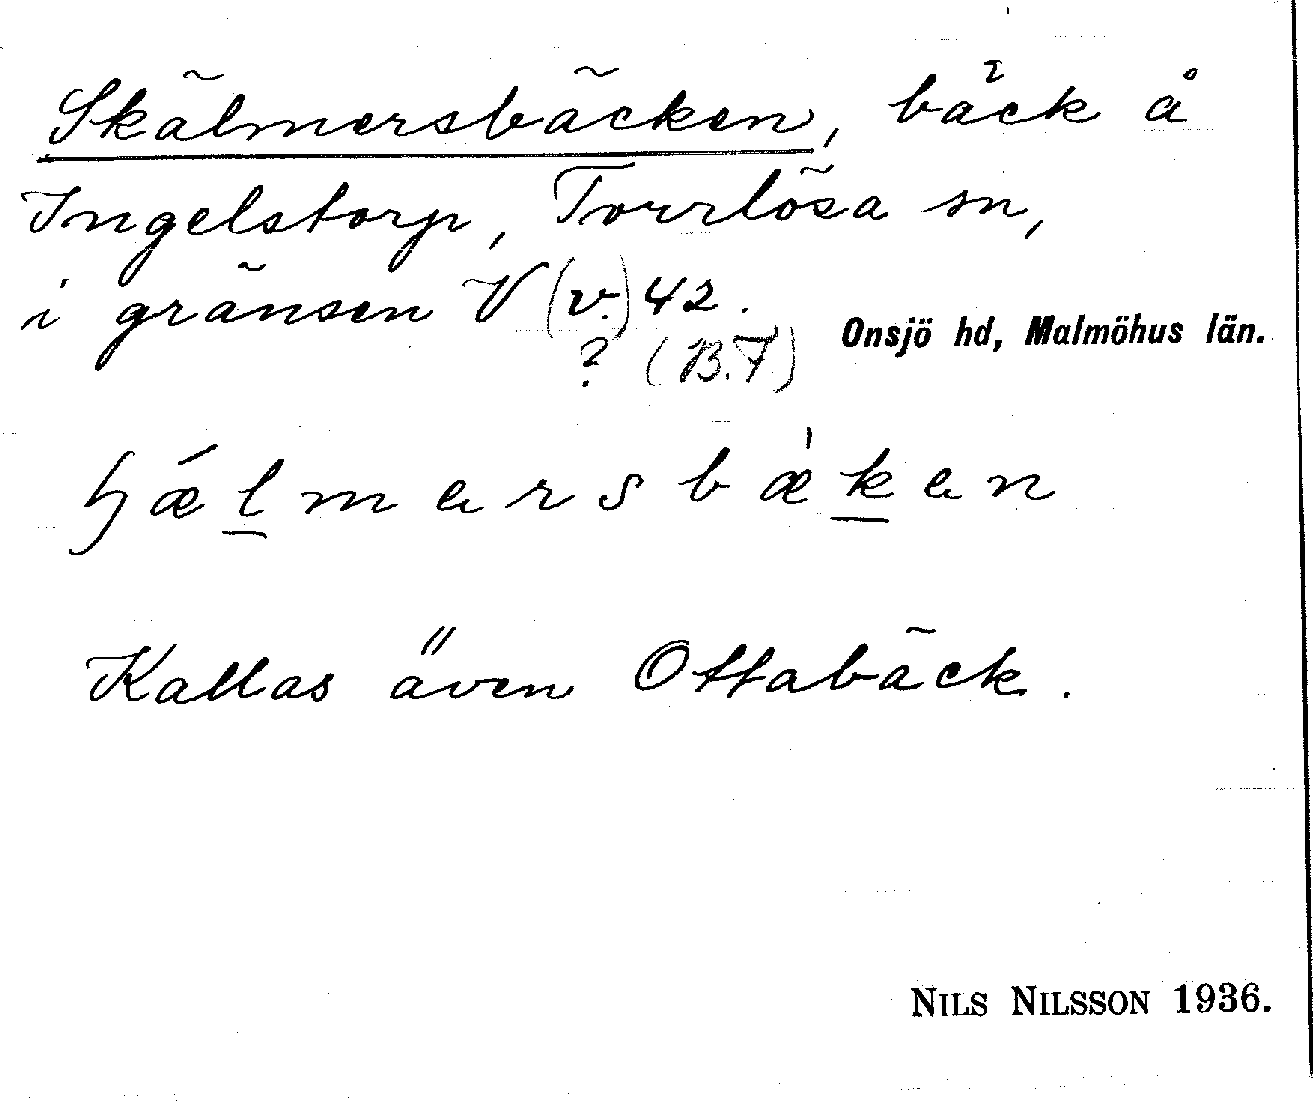 Skälmersbäcken, bäck å
Ingelstorp, Torrlösa sn,
i gränsen V (v.) 42.
? (B.F) Onsjö hd, Malmöhus län.
ɧǽl̲mersbæ̍k̲en
Kallas även Ottabäck.
NILS NILSSON 1936.